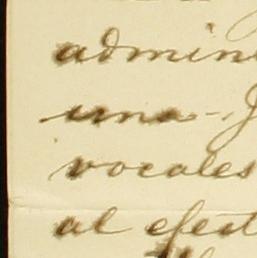 admin
una - J
vocales
al efect